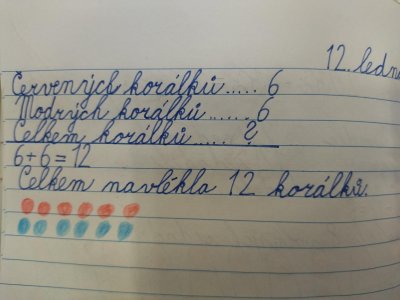 12. ledna
Červených korálků..... 6
Modrých korálků...... 6
Celkem korálků..... ?
6+6=12
Celkem navlékla 12 korálků.